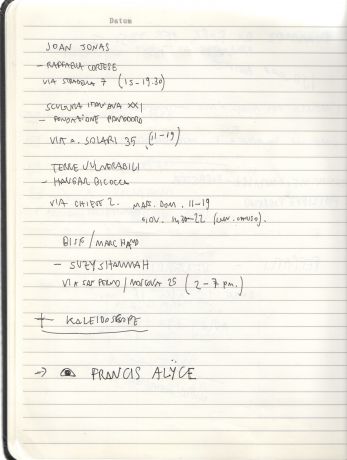 Datum
JOAN JONAS
– RAFFAELLA CORTESE
VIA STRADELLA 7 (15-19.30)
SCULTURA ITALIANA XXI
– FONDAZIONE POMODORO
VIA A. SOLARI 35 (11-19)
TERRE VULNERABILI
– HANGAR BICOCCA
VIA CHIESE 2. MAR. DOM. 11-19
GIOV. 14.30-22 (LUN. CHIUSO).
/ MARCHAND
– SUZY SHAMMAH
VIA SAN FERMO / MOSCOVA 25 (2-7 pm.)
+ KALEIDOSCOPE
→ FRANCIS ALŸCE